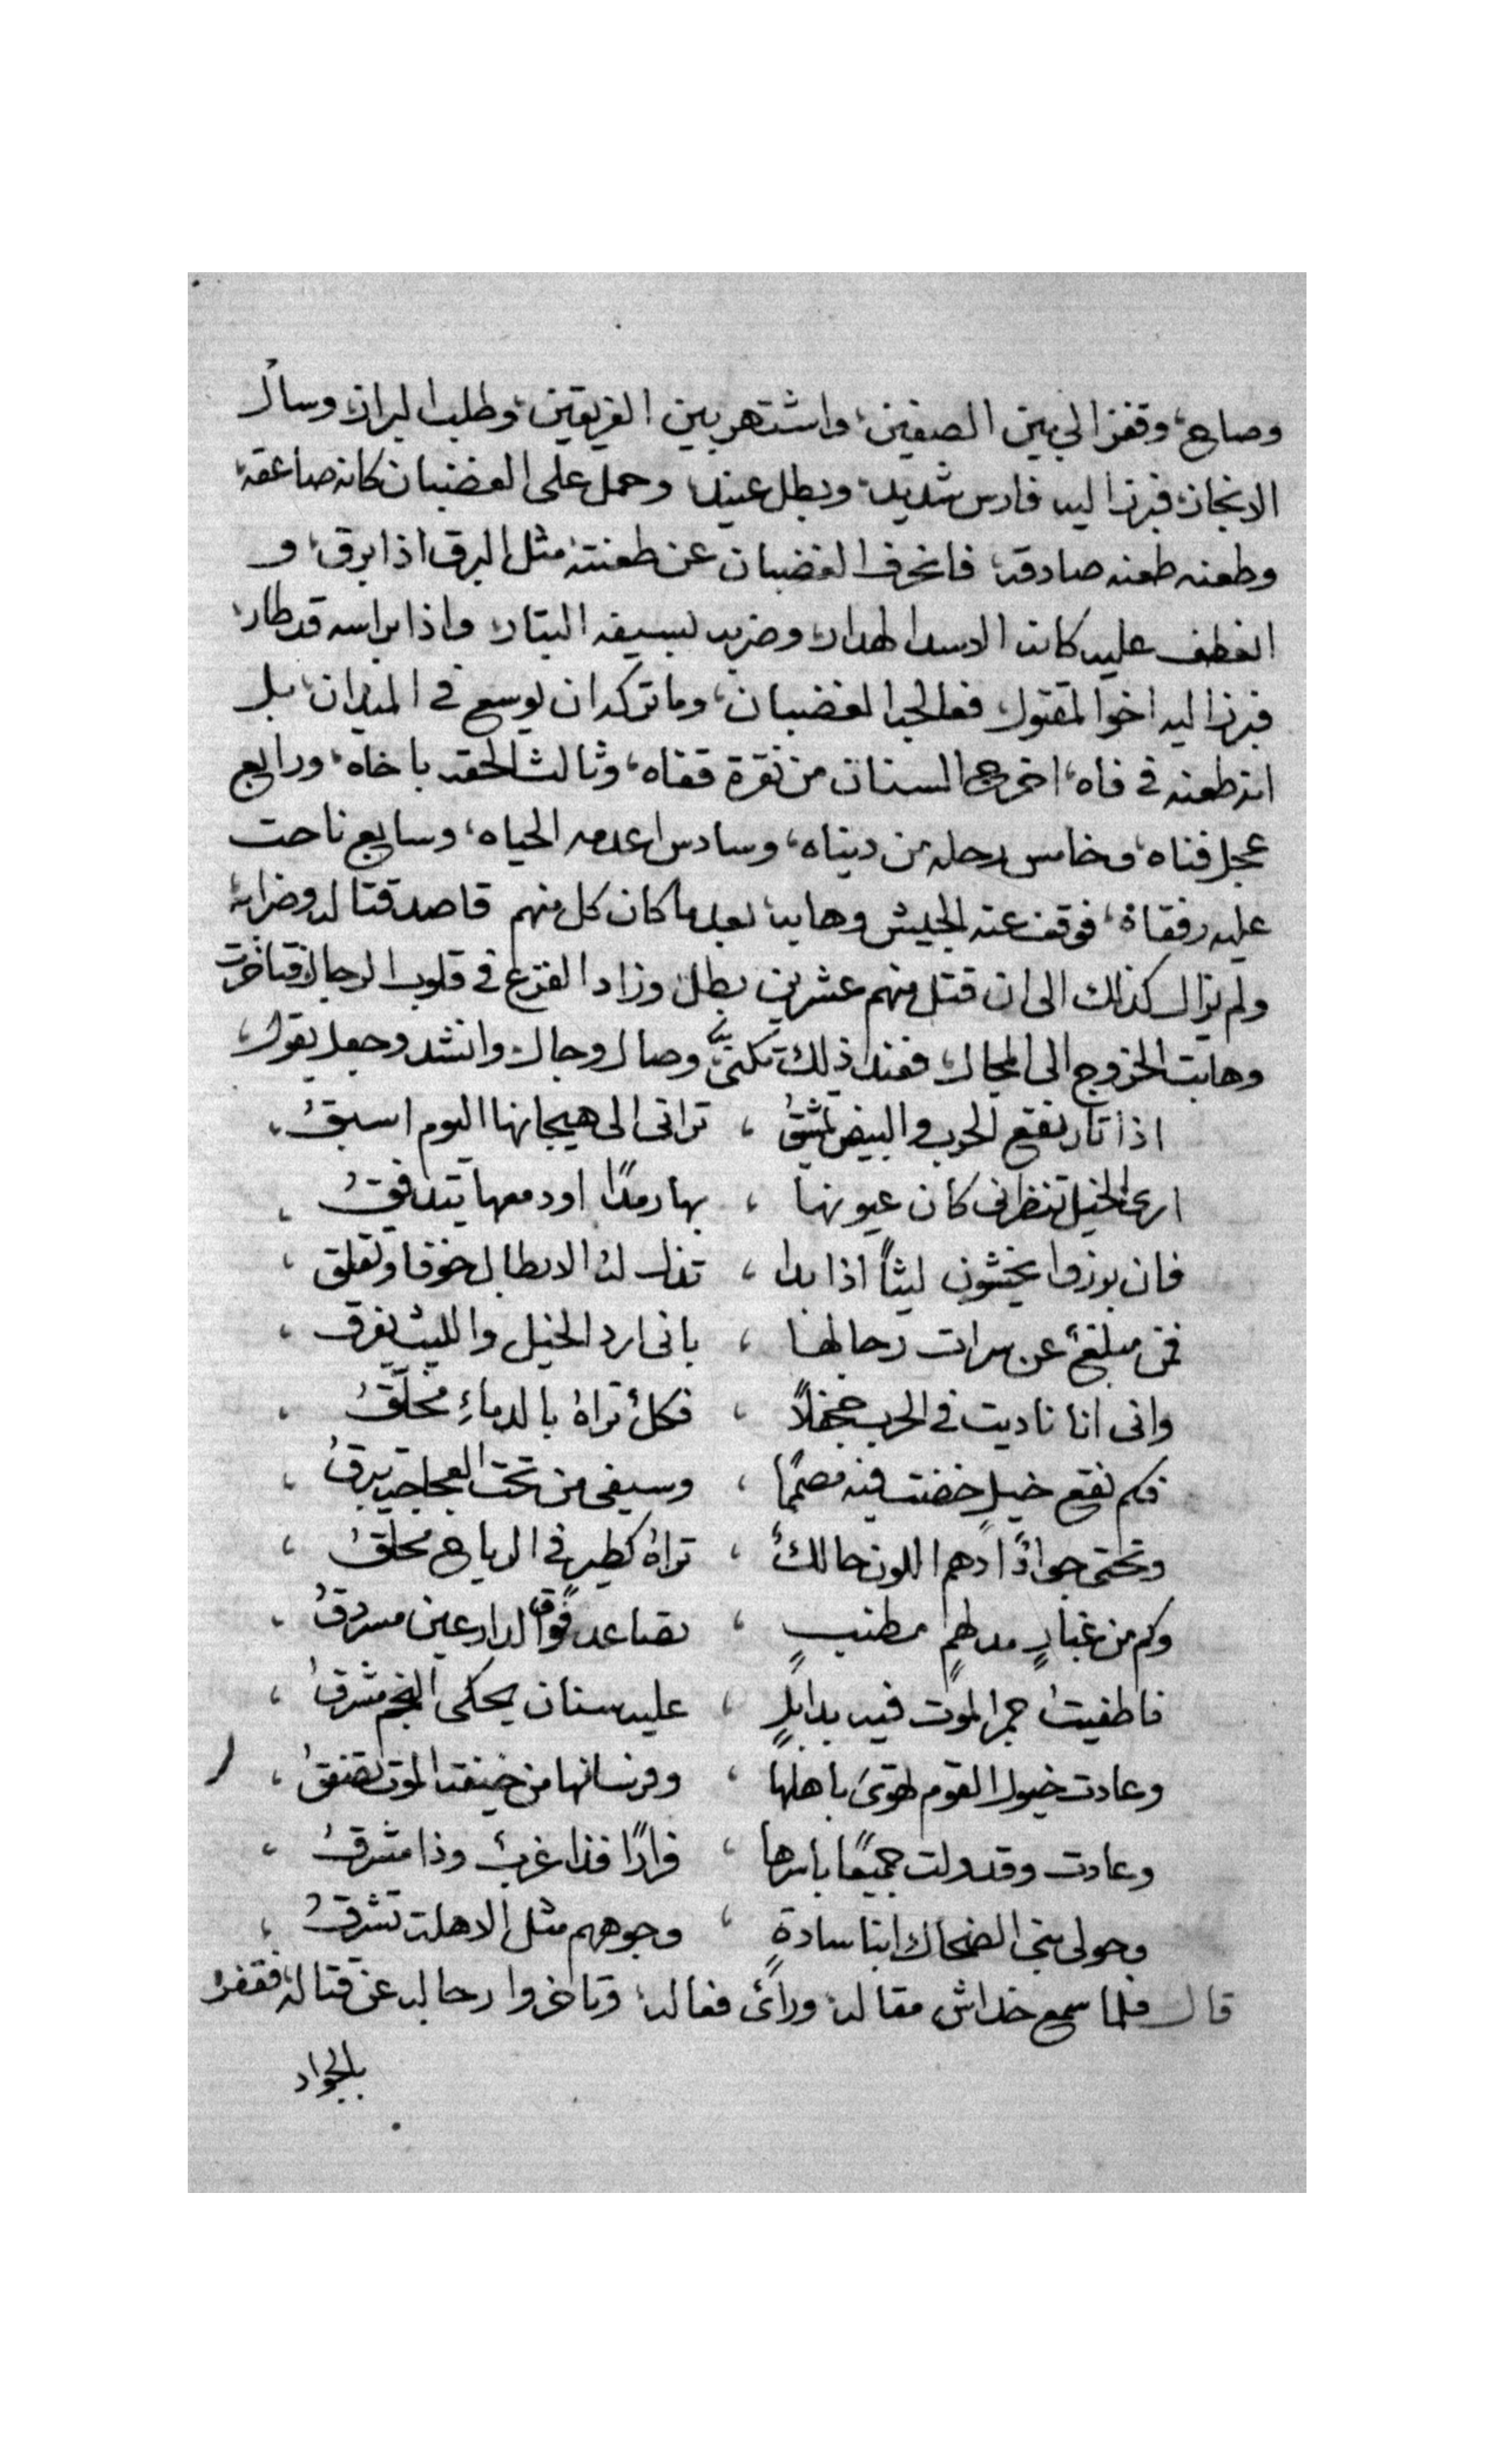 وصاح، وقفز الى بين الصفين، واشتهر بين الفريقين، وطلب البراز، وسال
الانجاز، فبرز اليه فارس شديد، وبطل عنيد، وحمل على الغضبان كانه صاعقه،
وطعنه طعنه صادقه، فانحرف الغضبان عن طعنته، مثل البرق اذا برق، و
انعطف عليه كانه الاسد الهدار، وضربه بسيفه البتار، واذا براسه قد طار،
فبرز اليه اخو المقتول، فعالجه الغضبان، وما تركه ان يوسع في الميدان، بل
انه طعنه في فاه، اخرج السنان من نقرة قفاه، وثالث الحقه باخاه، ورابع
عجل فناه، وخامس رحله من ديناه، وسادس اعدمه الحياه، وسابع ناحت
عليه رفقاة، فوقف عنه الجيش وهابه، بعد ما كان كل منهم قاصد قتاله وضرابه،
ولم يزال كذلك الى ان قتل منهم عشرين بطل، وزاد الفزع في قلوب الرجال، فتاخرت
وهابت الخروج الى المجال، فعند ذلك تكنى وصال وجال، وانشد وجعل يقول،
اذا ثار نقع الحرب والبيض تمشقُ ، تراني الى هيجانها اليوم اسبقُ،
ارى الخيل تنظرني كان عيونها ، بها رمدًا او دمعها يتدافقُ ،
فان برزوا يخشون ليثاً اذا بدا ، تذل له الابطال خوفا وتقلق ،
فمن مبلغ عن سرات رجالها ، باني ارد الخيل والليث يفرق ،
واني انا ناديت في الحرب جحفلاً ، فكلُ تراهُ بالدماءِ مخلّقُ ،
فكم نقع خيلٍ خضت فيه مصممًا ، وسيفي من تحت العجاجة يبرقُ ،
وتحتي جوادًا ادهم اللون حالكُ ، تراهُ كطير في الرياح محلقُ ،
وكم من غبارٍ مدلهمٍ مطنبٍ ، تصاعد فوق الدارعين مسردقُ ،
فاطفيتُ جمر الموت فيه بدابلٍ ، عليه سنان يحكي النجم مشرقُ ،
وعادت خيول القوم تهوى باهلها ، وفرسانها من خيفة الموت تصنقُ ،
وعادت وقد ولت جميعًا باسرها ، فرارًا فذا غربُ وذا مشرقُ ،
وحولى بني الضحاك ابنا سادةٍ ، وجوههم مثل الاهلة تشرقُ ،
قال فلما سمع خداش مقاله، وراى فعاله، وتاخروا رجاله عن قتاله، فقفز
بالجواد